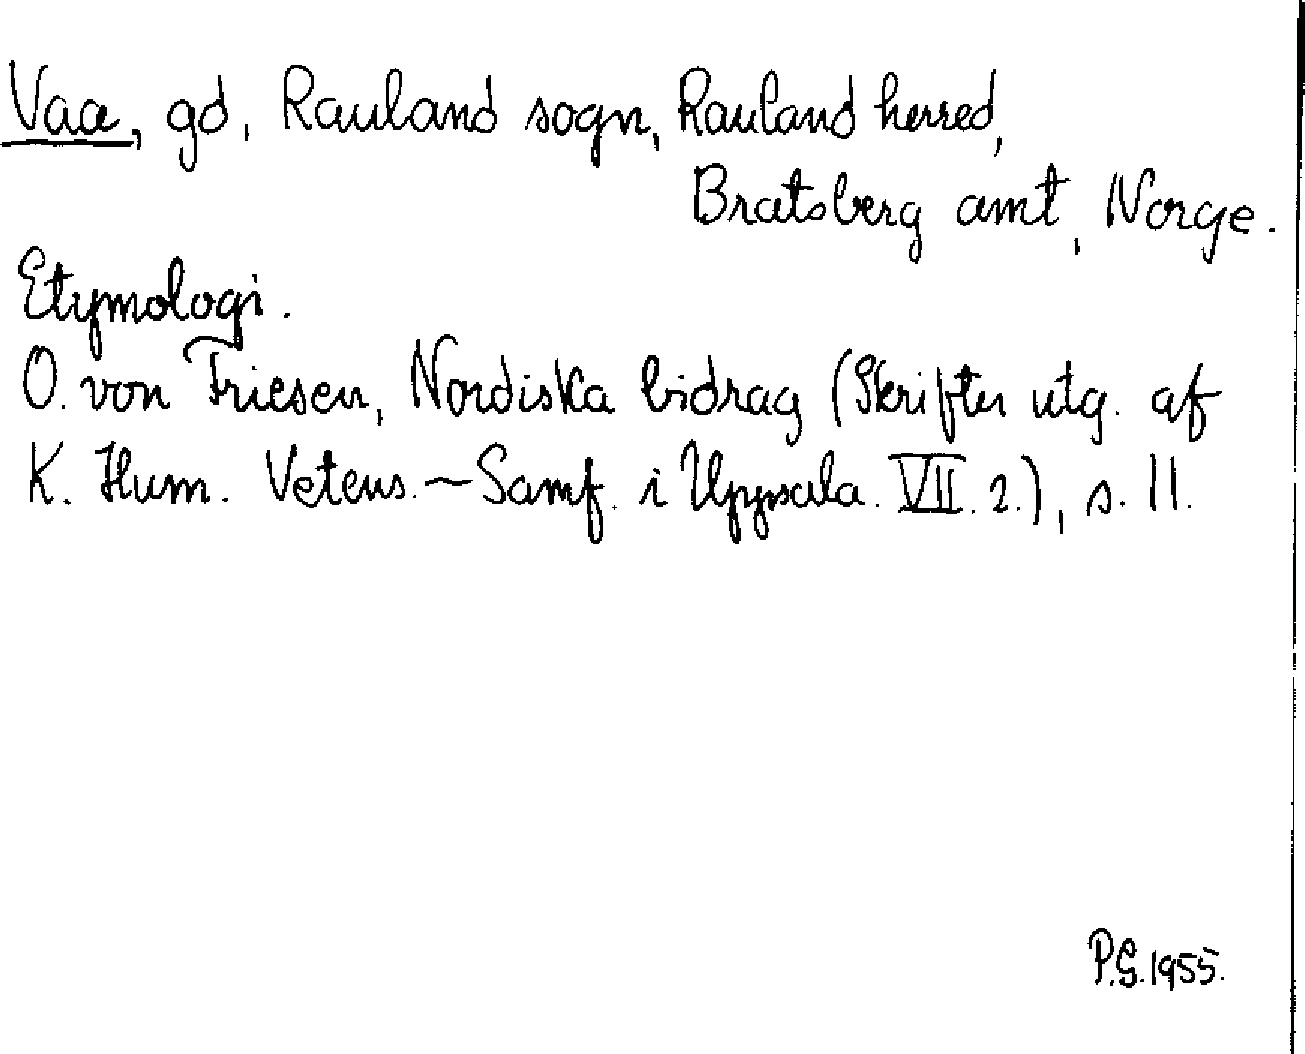 Vaa, gd, Rauland sogn, Rauland herred,
Bratsberg amt, Norge.
Etymologi.
O. von Friesen, Nordiska bidrag (Skrifter utg. af
K. Hum. Vetens.-Samf. i Uppsala. VII. 2.), s. 11.
P.G. 1955.